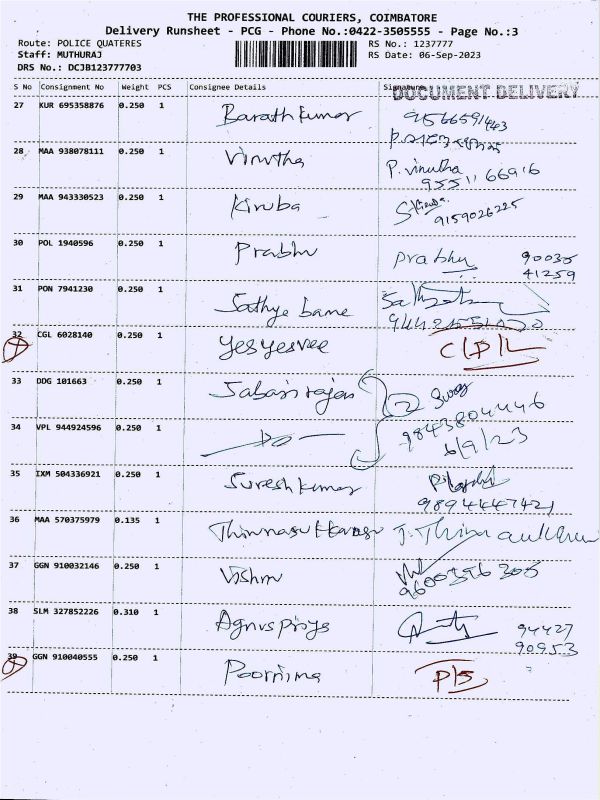 THE PROFESSIONAL COURIERS, COIMBATORE
Delivery Runsheet - PCG - Phone No.:0422-3505555 - Page No.:3
Route: POLICE QUATERES RS No.: 1237777
Staff: MUTHURAJ RS Date: 06-Sep-2023
DRS No.: DCJB123777703
S No Consignment No Weight PCS Consignee Details Signature
DOCUMENT DELIVERY
27 KUR 695358876 0.250 1 Barath kumar
28 MAA 938078111 0.250 1 Vinutha P. vinutha
95511 66916
29 MAA 943330523 0.250 1 Kiruba
9159026225
30 POL 1940596 0.250 1 Prabhu prabhu 90035
41259
31 PON 7941230 0.250 1 Sathye bame
32 CGL 6028140 0.250 1 yesyesvee C/P/L
33 DDG 101663 0.250 1 Sabarirajan 2
9843804446
34 VPL 944924596 0.250 1 Do 6/9/23
35 IXM 504336921 0.250 1 Suresh kumar
9894447421
36 MAA 570375979 0.135 1
37 GGN 910032146 0.250 1 Vishnu
9600396305
38 SLM 327852226 0.310 1 Agnus priya 94427
90953
39 GGN 910040555 0.250 1 Poornima P/S